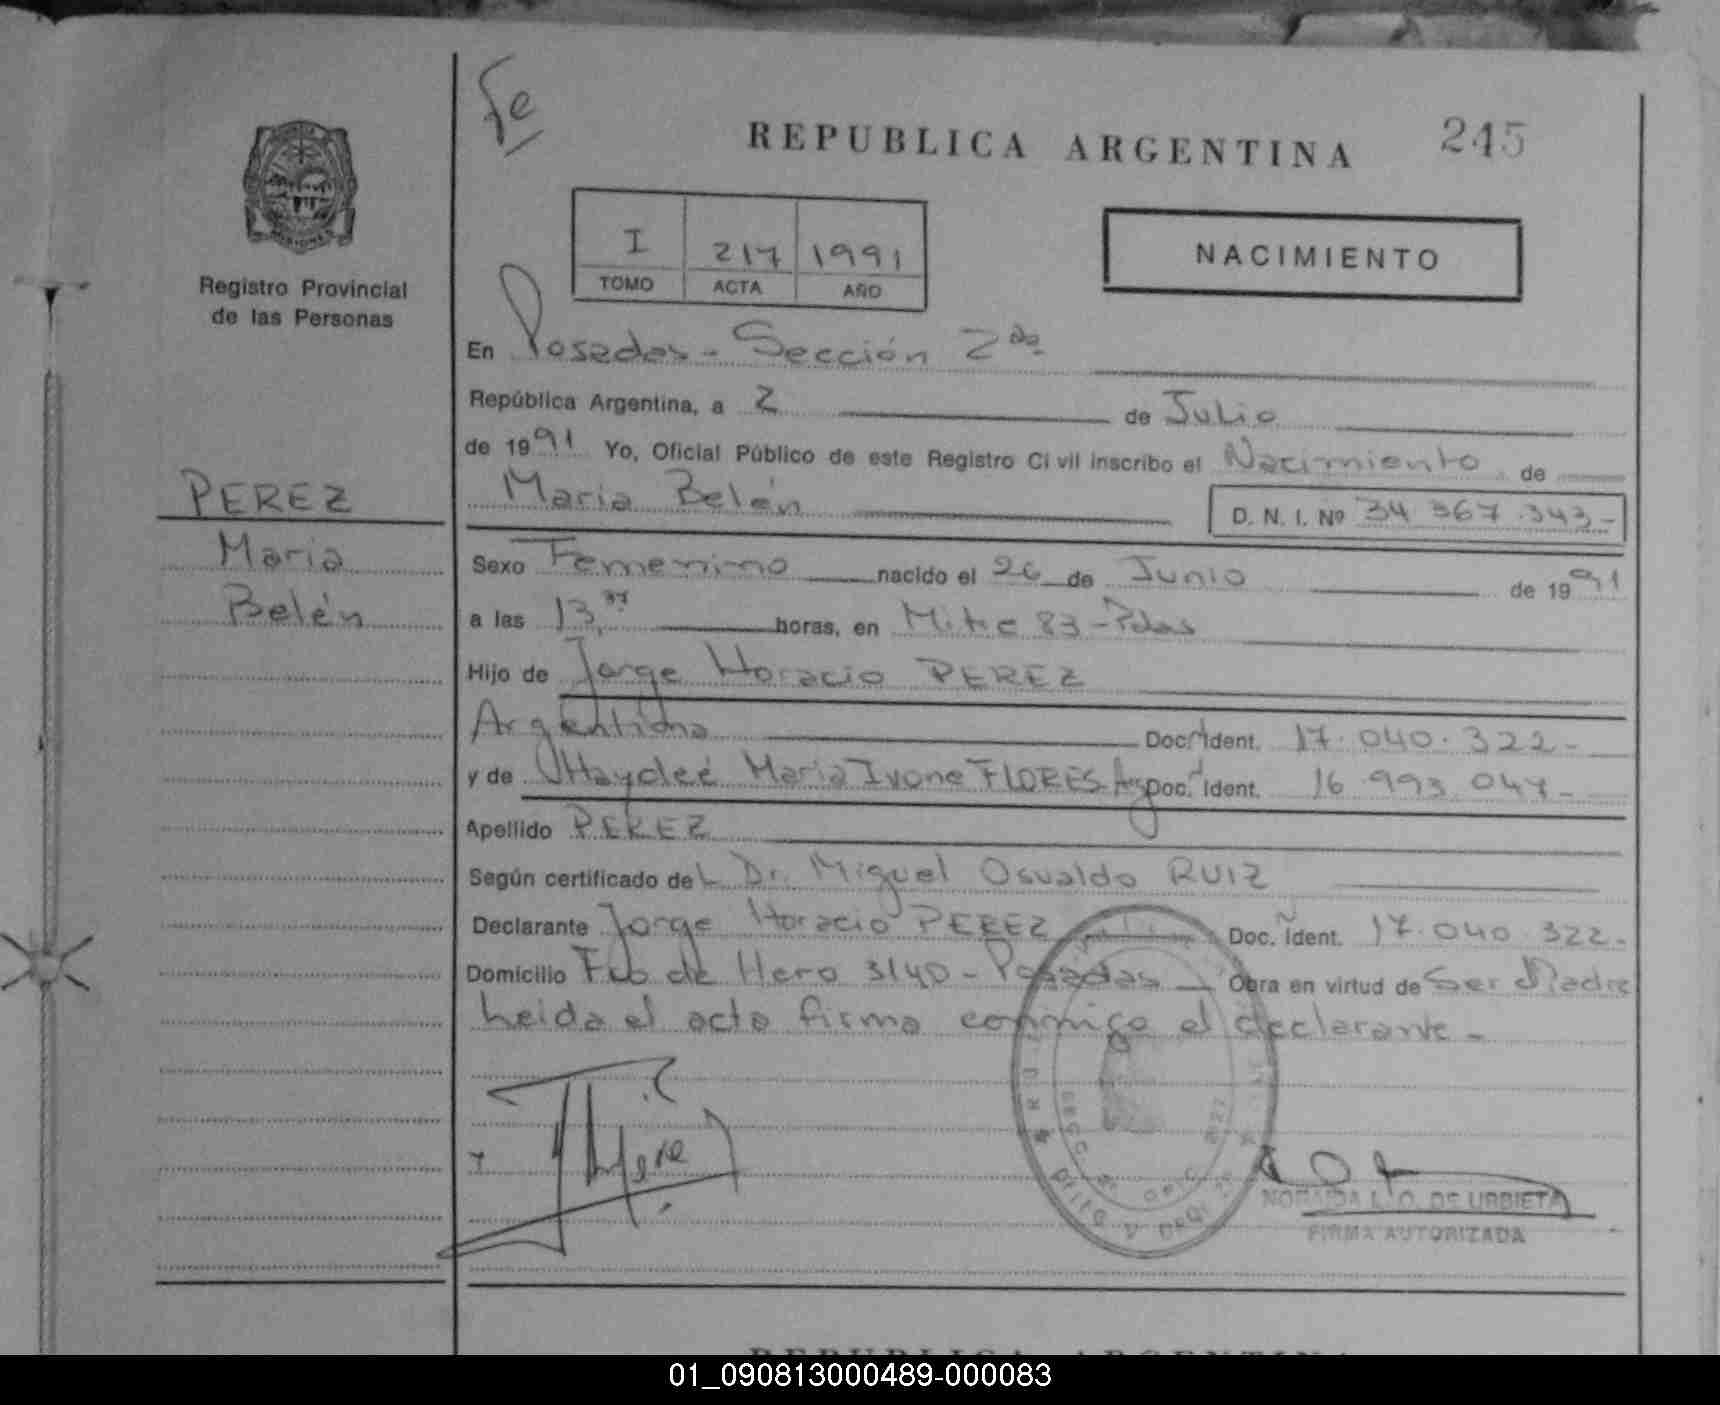 Fe
REPUBLICA ARGENTINA 245
I 217 1991
TOMO ACTA AÑO
NACIMIENTO
Registro Provincial
de las Personas
En Posadas - Sección 2da
República Argentina, a 2 de Julio
de 1991 Yo, Oficial Público de este Registro Civil inscribo el Nacimiento de
Maria Belén D. N. I. Nº 34 367.343-
PEREZ
Maria
Belén
Sexo Femenino nacido el 26 de Junio de 1991
a las 13, horas, en Mitre 83 - Pdas
Hijo de Jorge Horacio PEREZ
Argentino Doc. Ident. 17.040.322-
y de Haydeé Maria Ivone FLORES Arg Doc. Ident. 16.993.047-
Apellido PEREZ
Según certificado del Dr. Miguel Osvaldo RUIZ
Declarante Jorge Horacio PEREZ Doc. Ident. 17.040.322-
Domicilio Fco de Hero 3140 - Posadas Obra en virtud de Ser Padre
heida el acta firma conmigo el declarante -
NORAIDA L. O. DE URBIETA
FIRMA AUTORIZADA
REPUBLICA ARGENTINA
01_090813000489-000083